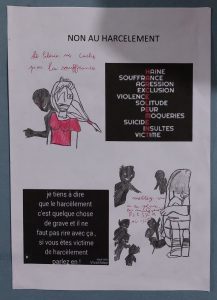 NON AU HARCELEMENT
le silence ne cache
pas la souffrance
HAINE
SOUFFRANCE
AGRESSION
EXCLUSION
VIOLENCE
SOLITUDE
PEUR
MOQUERIES
SUICIDE
INSULTES
VICTIME
je tiens à dire
que le harcèlement
c'est quelque chose
de grave et il ne
faut pas rire avec ça,
si vous êtes victime
de harcèlement
parlez en !